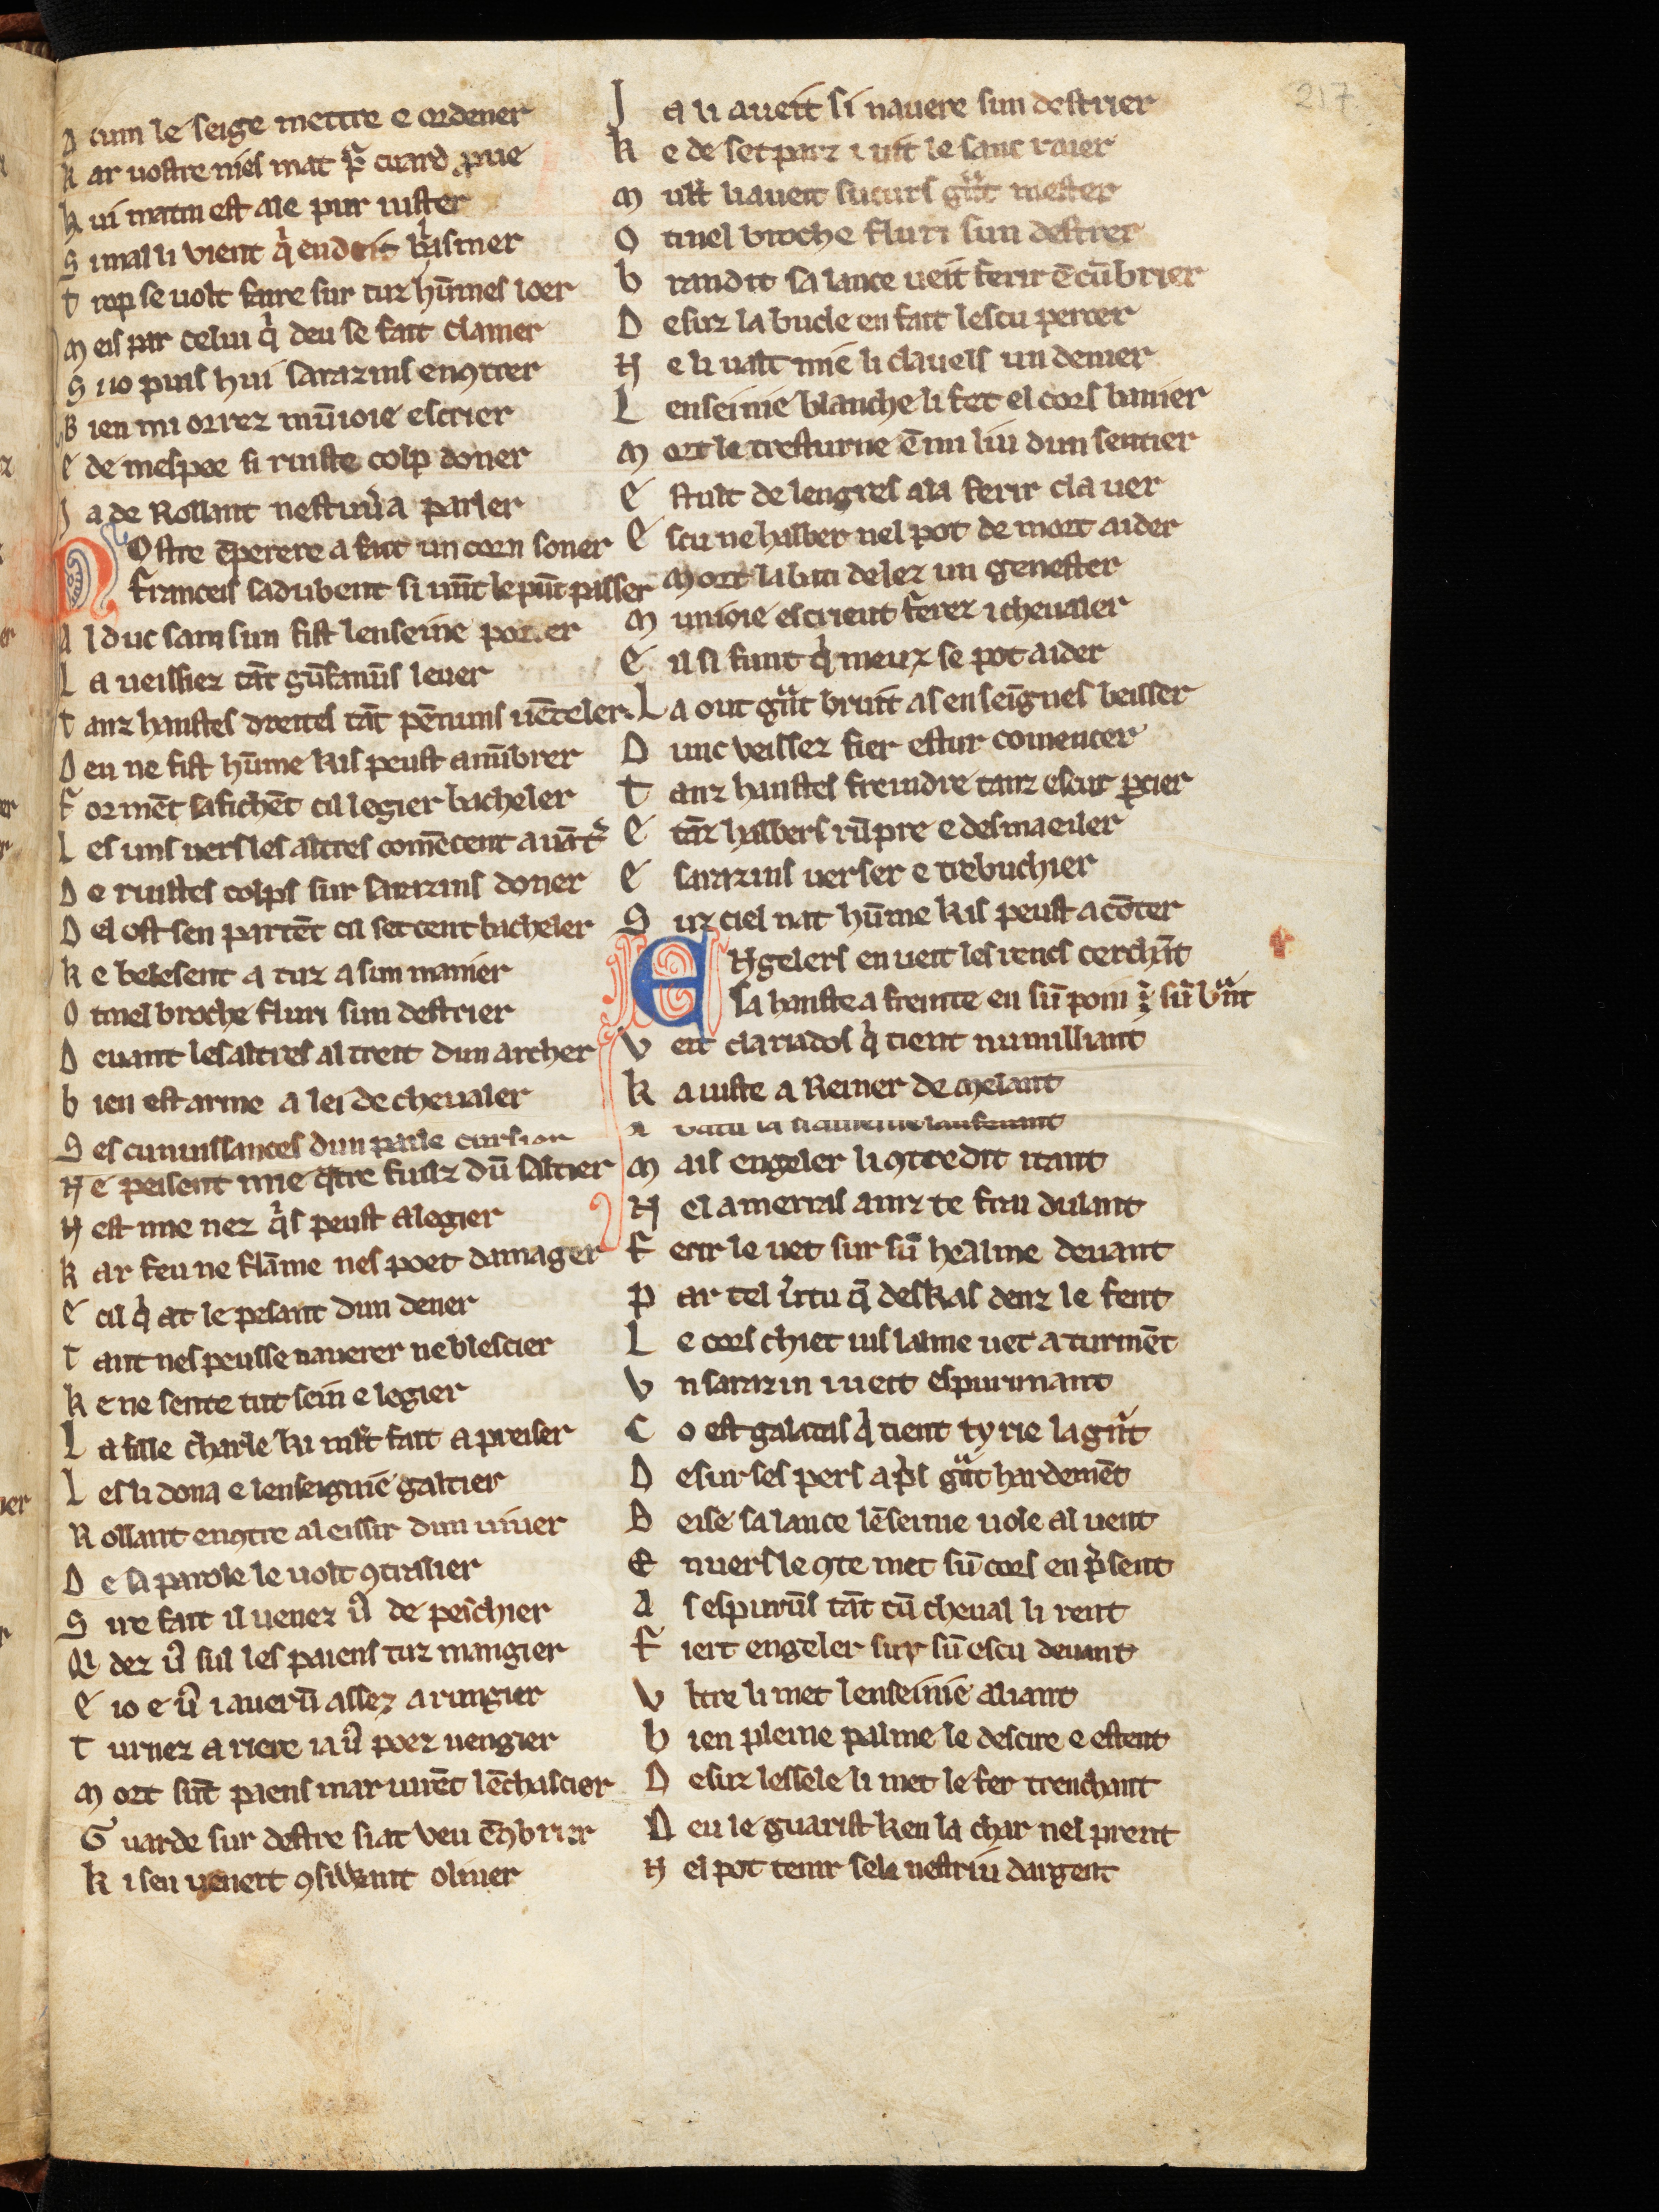 217
A cum le seige mettre e ordener
K ar uostre nies mat pͬ cuard pͥue
h ui matin est ale pur iuster
S i mal li vient qͥ en deit blasmer
T rop se uolt faire sur tuz hūmes loer
M eis par celui qͥ deu se fait clamer
S i io puis hui sarazins enꝯtrer
B ien mi orrez mūioie escrier
E de mespee si ruiste colp doner
J a de Rollant nestuuͥa parler
N Ostre ēperere a fait un corn soner
Franceis sadubent si uūt le pūt passer
A l duc samsun fist lenseine porter
L a ueissiez tāt gūfanūs leuer
T anz hanstes dreites tāt pēnuns uēteler
D eu ne fist hūme kis peust anūbrer
F ormēt safichēt cil legier bacheler
L es uns uers les altres comēcent a uāt͛
D e ruistes colps sur sarazins doner
D el ost sen partēt cil set cent bacheler
K e belesent a tuz a sun manier
O tinel broche fluri sun destrier
D euant les altres al treit dun archer
b ien est arme a lei de cheualer
S es cunuissances dun paile
N e peisent mie q̄tre fuilz dū saltier
N est mie nez qͥs peust alegier
K ar feu ne flāme nes poet damager
E cil qͥ at le pesant dun dener
T ant nes peusse nauerer ne blescier
K e ne sente tut sein e legier
L a fille charle ki mlt fait a preiser
L es li dona e lenseignie galtier
R ollant enꝯtre al eissir dun uiuer
D e sa parole le uolt ꝯtralier
S ire fait il uenez u͛ de peschier
Q i dez u͛ sul les paiens tuz mangier
E io e u͛ i auerū assez a rungier
T urnez a riere ia u͛ poez uengier
M ort sūt paens mar uirēt lēchascier
G uarde sur destre si at veu ēꝯbrier
K i sen ueneit ꝯsiwant oliuer
J a li aueit si nauere sun destrier
K e de set parz i uit le sanc raier
M ult li aueit sucurs gͣnt mester
O tinel broche fluri sun destrer
b randit sa lance ueit ferir ēcūbrier
D esuz la bucle en fait lescu percer
N e li ualt mie li clauels un denier
L enseinie blanche li fet el cors banier
M ort le tresturne ēmi liu dun sentier
E stult de lengres ala ferir clauer
E scu ne halber nel pot de mort aider
Mort labati delez un genester
M unioie escrient ferez i cheualer
E il si funt qͥ meuz se pot aider
L a out gͣnt bruit as enseīgnes beisser
D unc veissez fier estur comencer
T anz hanstes freindre tanz escuz ꝑcier
E tāz halbers rūpre e desmaeiler
E sarazins uerser e trebuchier
S uz ciel nat hūme kis peust acōter
E Ngelers en ueit les rencs cerchāt
Sa hanste a freinte en sū poin ⁊ sū bͣnt
V eit clariados qͥ tient numilliant
K a iuste a Reiner de Melant

M ais engeler li ꝯtredit itant
N el amerras ainz te frai dulant
F erir le uet sur sū healme deuant
P ar tel uͥtu q̄ deskas denz le fent
L e cors chiet ius lalme uet a turmēt
V n sarazin i ueit espurunant
C o est galatas qͥ tient tyrie la gͣnt
D esur ses pers a pͥs gͣnt hardemēt
B eise sa lance lēseinne uole al uent
E nuers le ꝯte met sū cors en pͥsent
A s espurūs tāt cū cheual li rent
F iert engeler sur sū escu deuant
V ltre li met lenseinie aliant
b ien pleine palme le descire e estent
D esuz lessele li met le fer trenchant
D eu le guarist ken la char nel prent
N el pot tenir sele nestriu dargent